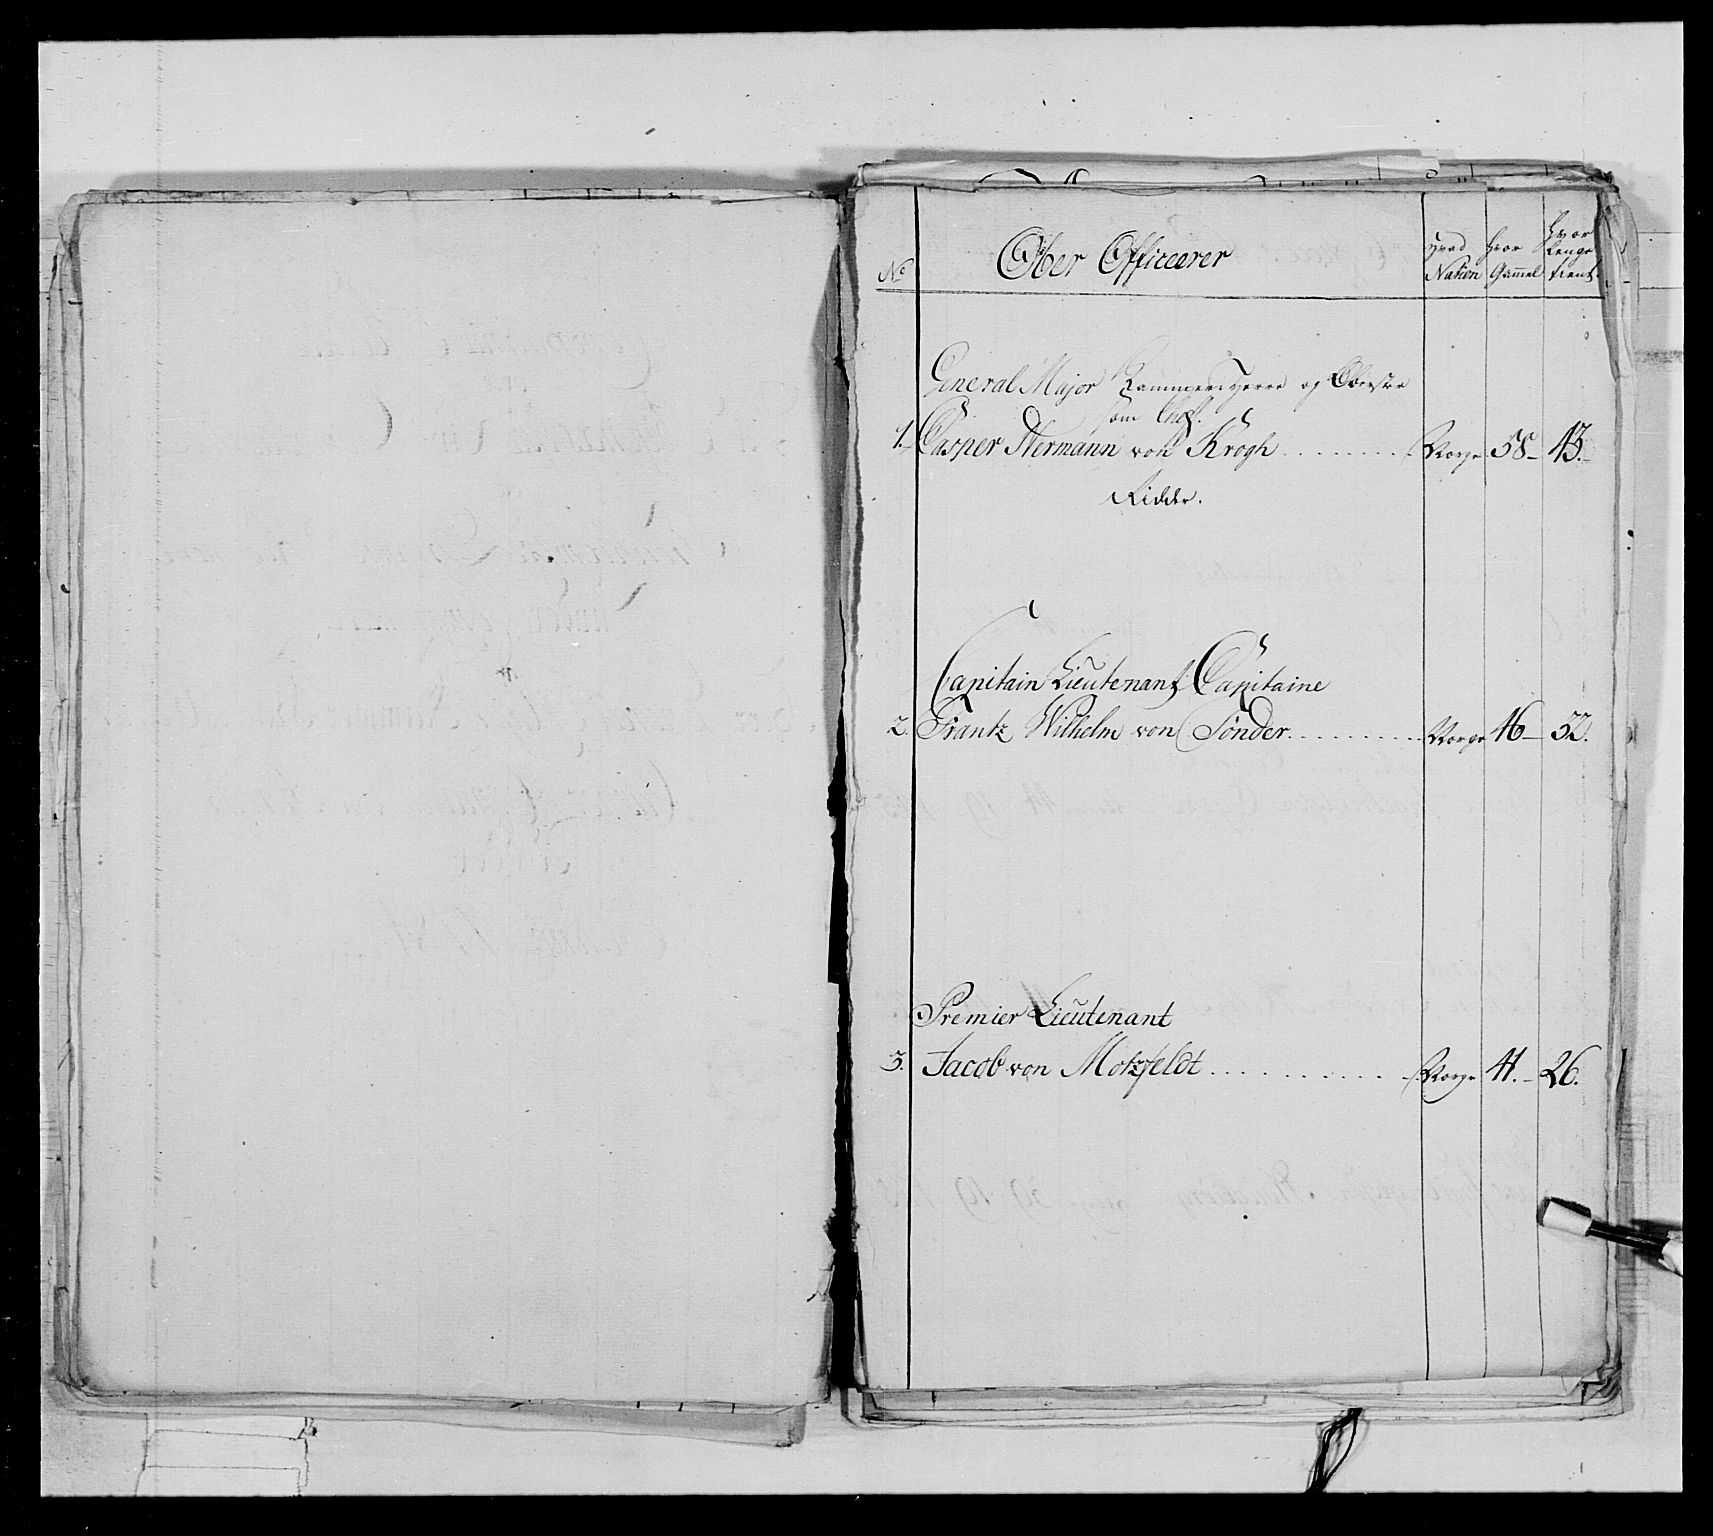 No
Ober Officerer
Hvad Nation
Hvor Gammel
Hvor Lenge tient
General Major Kammer Herre og Oberste
som Chef.
1. Casper Hermann von Krogh ......... Norge 58 - 43. -
Ridder.
Capitain Lieutenant Capitaine
2. Frantz Wilhelm von Sönder ......... Norge 46 - 32.
Premier Lieutenant
3. Jacob von Motzfeldt ............ Norge 41. - 26.